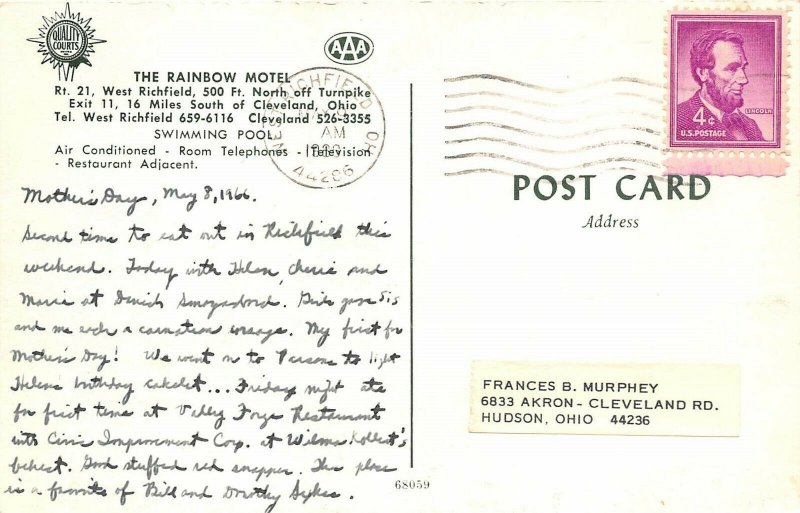 QUALITY
COURTS
AAA
THE RAINBOW MOTEL
Rt. 21, West Richfield, 500 Ft. North off Turnpike
Exit 11, 16 Miles South of Cleveland, Ohio
Tel. West Richfield 659-6116 Cleveland 526-3355
SWIMMING POOL
Air Conditioned - Room Telephones - Television
- Restaurant Adjacent.
WEST RICHFIELD OH
AM
44286
4¢
LINCOLN
U.S. POSTAGE
POST CARD
Address
Mother's Day, May 8, 1966.
Second time to eat out in Richfield this
weekend. Today with Helen, Cherie and
Marie at Danish Smorgasbord. Girls gave Sis
and me each a carnation corsage. My first for
Mother's Day! We went on to Parsons to light
Helen's birthday cakelet... Friday night ate
for first time at Valley Forge Restaurant
with Civic Improvement Corp. at Wilma
behest. Good stuffed red snapper. This place
is a favorite of Bill and Dorothy Sykes.
68059
FRANCES B. MURPHEY
6833 AKRON - CLEVELAND RD.
HUDSON, OHIO 44236